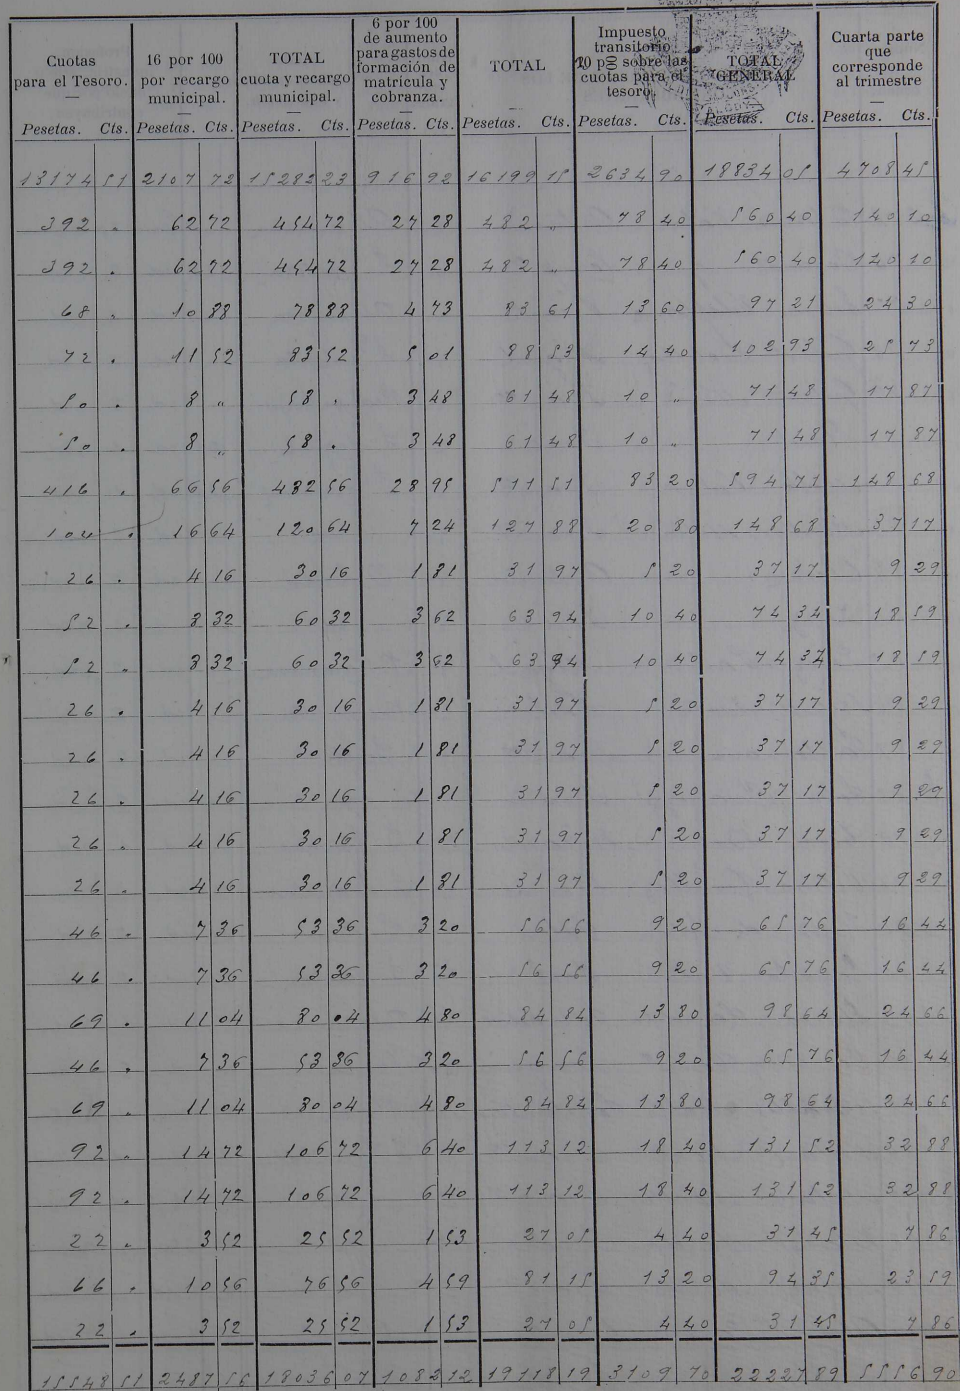 Cuotas para el Tesoro. | 16 por 100 por recargo municipal. | TOTAL cuota y recargo municipal. | 6 por 100 de aumento para gastos de formación de matrícula y cobranza. | TOTAL | Impuesto transitorio 20 p 00 sobre las cuotas para el tesoro. | TOTAL GENERAL | Cuarta parte que corresponde al trimestre
Pesetas. Cts. | Pesetas. Cts. | Pesetas. Cts. | Pesetas. Cts. | Pesetas. Cts. | Pesetas. Cts. | Pesetas. Cts. | Pesetas. Cts.
13174 51 | 2107 72 | 15282 23 | 916 92 | 16199 15 | 2634 90 | 18834 05 | 4708 45
392 . | 62 72 | 454 72 | 27 28 | 482 " | 78 40 | 560 40 | 140 10
392 . | 62 72 | 454 72 | 27 28 | 482 " | 78 40 | 560 40 | 140 10
68 . | 10 88 | 78 88 | 4 73 | 83 61 | 13 60 | 97 21 | 24 30
72 . | 11 52 | 83 52 | 5 01 | 88 53 | 14 40 | 102 93 | 25 73
50 . | 8 " | 58 . | 3 48 | 61 48 | 10 " | 71 48 | 17 87
50 . | 8 " | 58 . | 3 48 | 61 48 | 10 " | 71 48 | 17 87
416 . | 66 56 | 482 56 | 28 95 | 511 51 | 83 20 | 594 71 | 148 68
104 . | 16 64 | 120 64 | 7 24 | 127 88 | 20 80 | 148 68 | 37 17
26 . | 4 16 | 30 16 | 1 81 | 31 97 | 5 20 | 37 17 | 9 29
52 . | 8 32 | 60 32 | 3 62 | 63 94 | 10 40 | 74 34 | 18 59
52 . | 8 32 | 60 32 | 3 62 | 63 94 | 10 40 | 74 34 | 18 59
26 . | 4 16 | 30 16 | 1 81 | 31 97 | 5 20 | 37 17 | 9 29
26 . | 4 16 | 30 16 | 1 81 | 31 97 | 5 20 | 37 17 | 9 29
26 . | 4 16 | 30 16 | 1 81 | 31 97 | 5 20 | 37 17 | 9 29
26 . | 4 16 | 30 16 | 1 81 | 31 97 | 5 20 | 37 17 | 9 29
26 . | 4 16 | 30 16 | 1 81 | 31 97 | 5 20 | 37 17 | 9 29
46 . | 7 36 | 53 36 | 3 20 | 56 56 | 9 20 | 65 76 | 16 44
46 . | 7 36 | 53 36 | 3 20 | 56 56 | 9 20 | 65 76 | 16 44
69 . | 11 04 | 80 04 | 4 80 | 84 84 | 13 80 | 98 64 | 24 66
46 . | 7 36 | 53 36 | 3 20 | 56 56 | 9 20 | 65 76 | 16 44
69 . | 11 04 | 80 04 | 4 80 | 84 84 | 13 80 | 98 64 | 24 66
92 . | 14 72 | 106 72 | 6 40 | 113 12 | 18 40 | 131 52 | 32 88
92 . | 14 72 | 106 72 | 6 40 | 113 12 | 18 40 | 131 52 | 32 88
22 . | 3 52 | 25 52 | 1 53 | 27 05 | 4 40 | 31 45 | 7 86
66 . | 10 56 | 76 56 | 4 59 | 81 15 | 13 20 | 94 35 | 23 59
22 . | 3 52 | 25 52 | 1 53 | 27 05 | 4 40 | 31 45 | 7 86
15548 51 | 2487 56 | 18036 07 | 1082 12 | 19118 19 | 3109 70 | 22227 89 | 5556 90